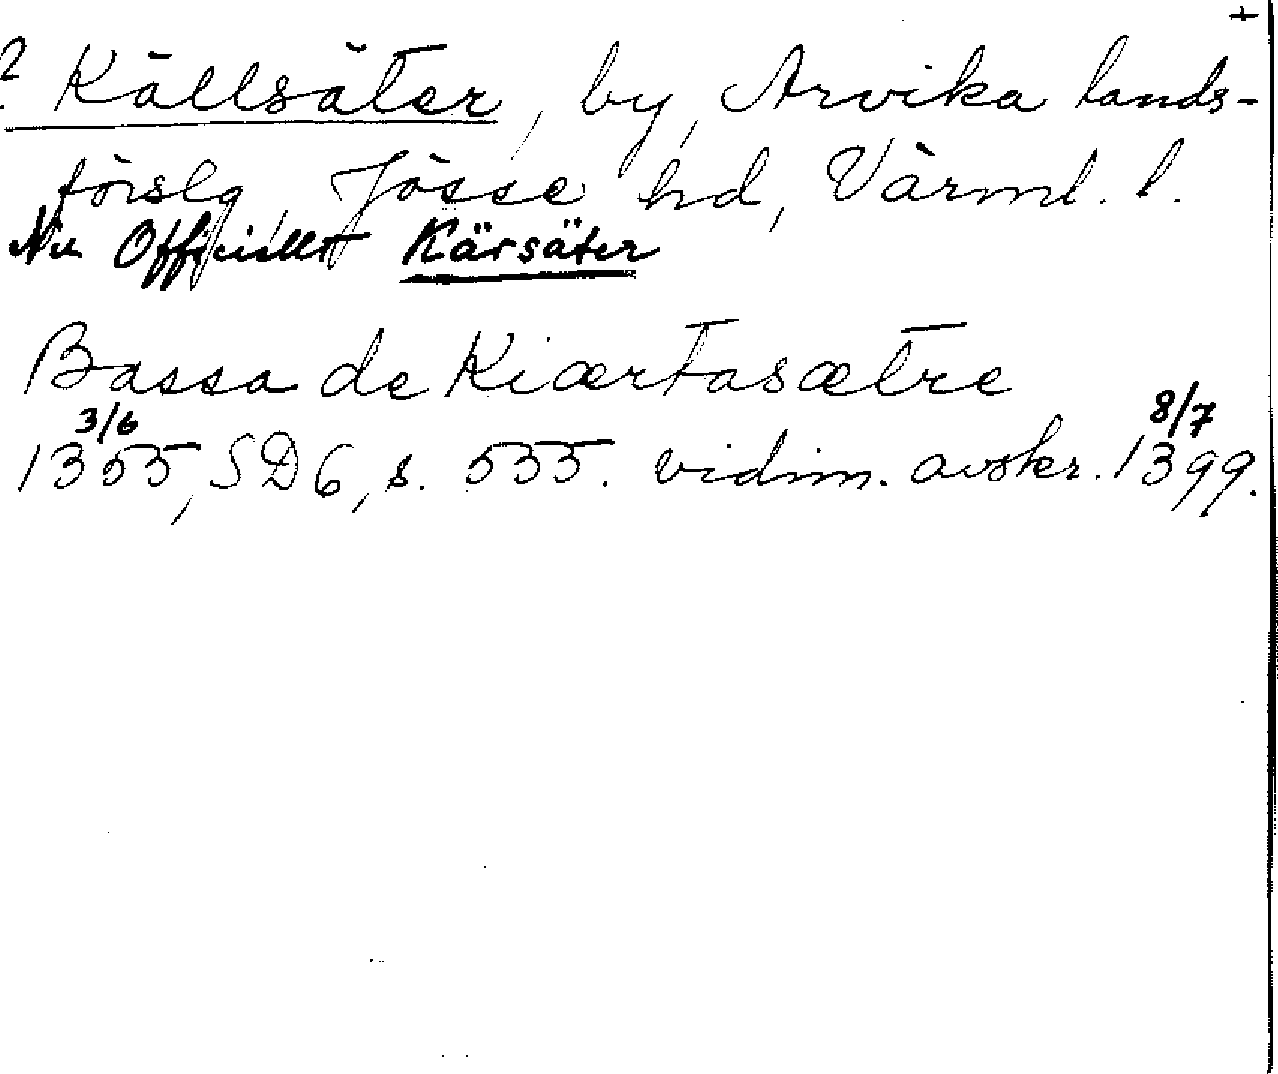 +
? Källsäter, by, Arvika lands-
förslg, Jösse hd, Värml. l.
Nu Officiellt Kärsäter
Bassa de Kiærtasætre
3/6 8/7
1355, SD6, s. 535. vidim. avskr. 1399.